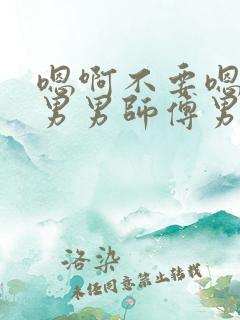 嗯啊不要嗯
男男師傅男
洛染
未经同意禁止转载